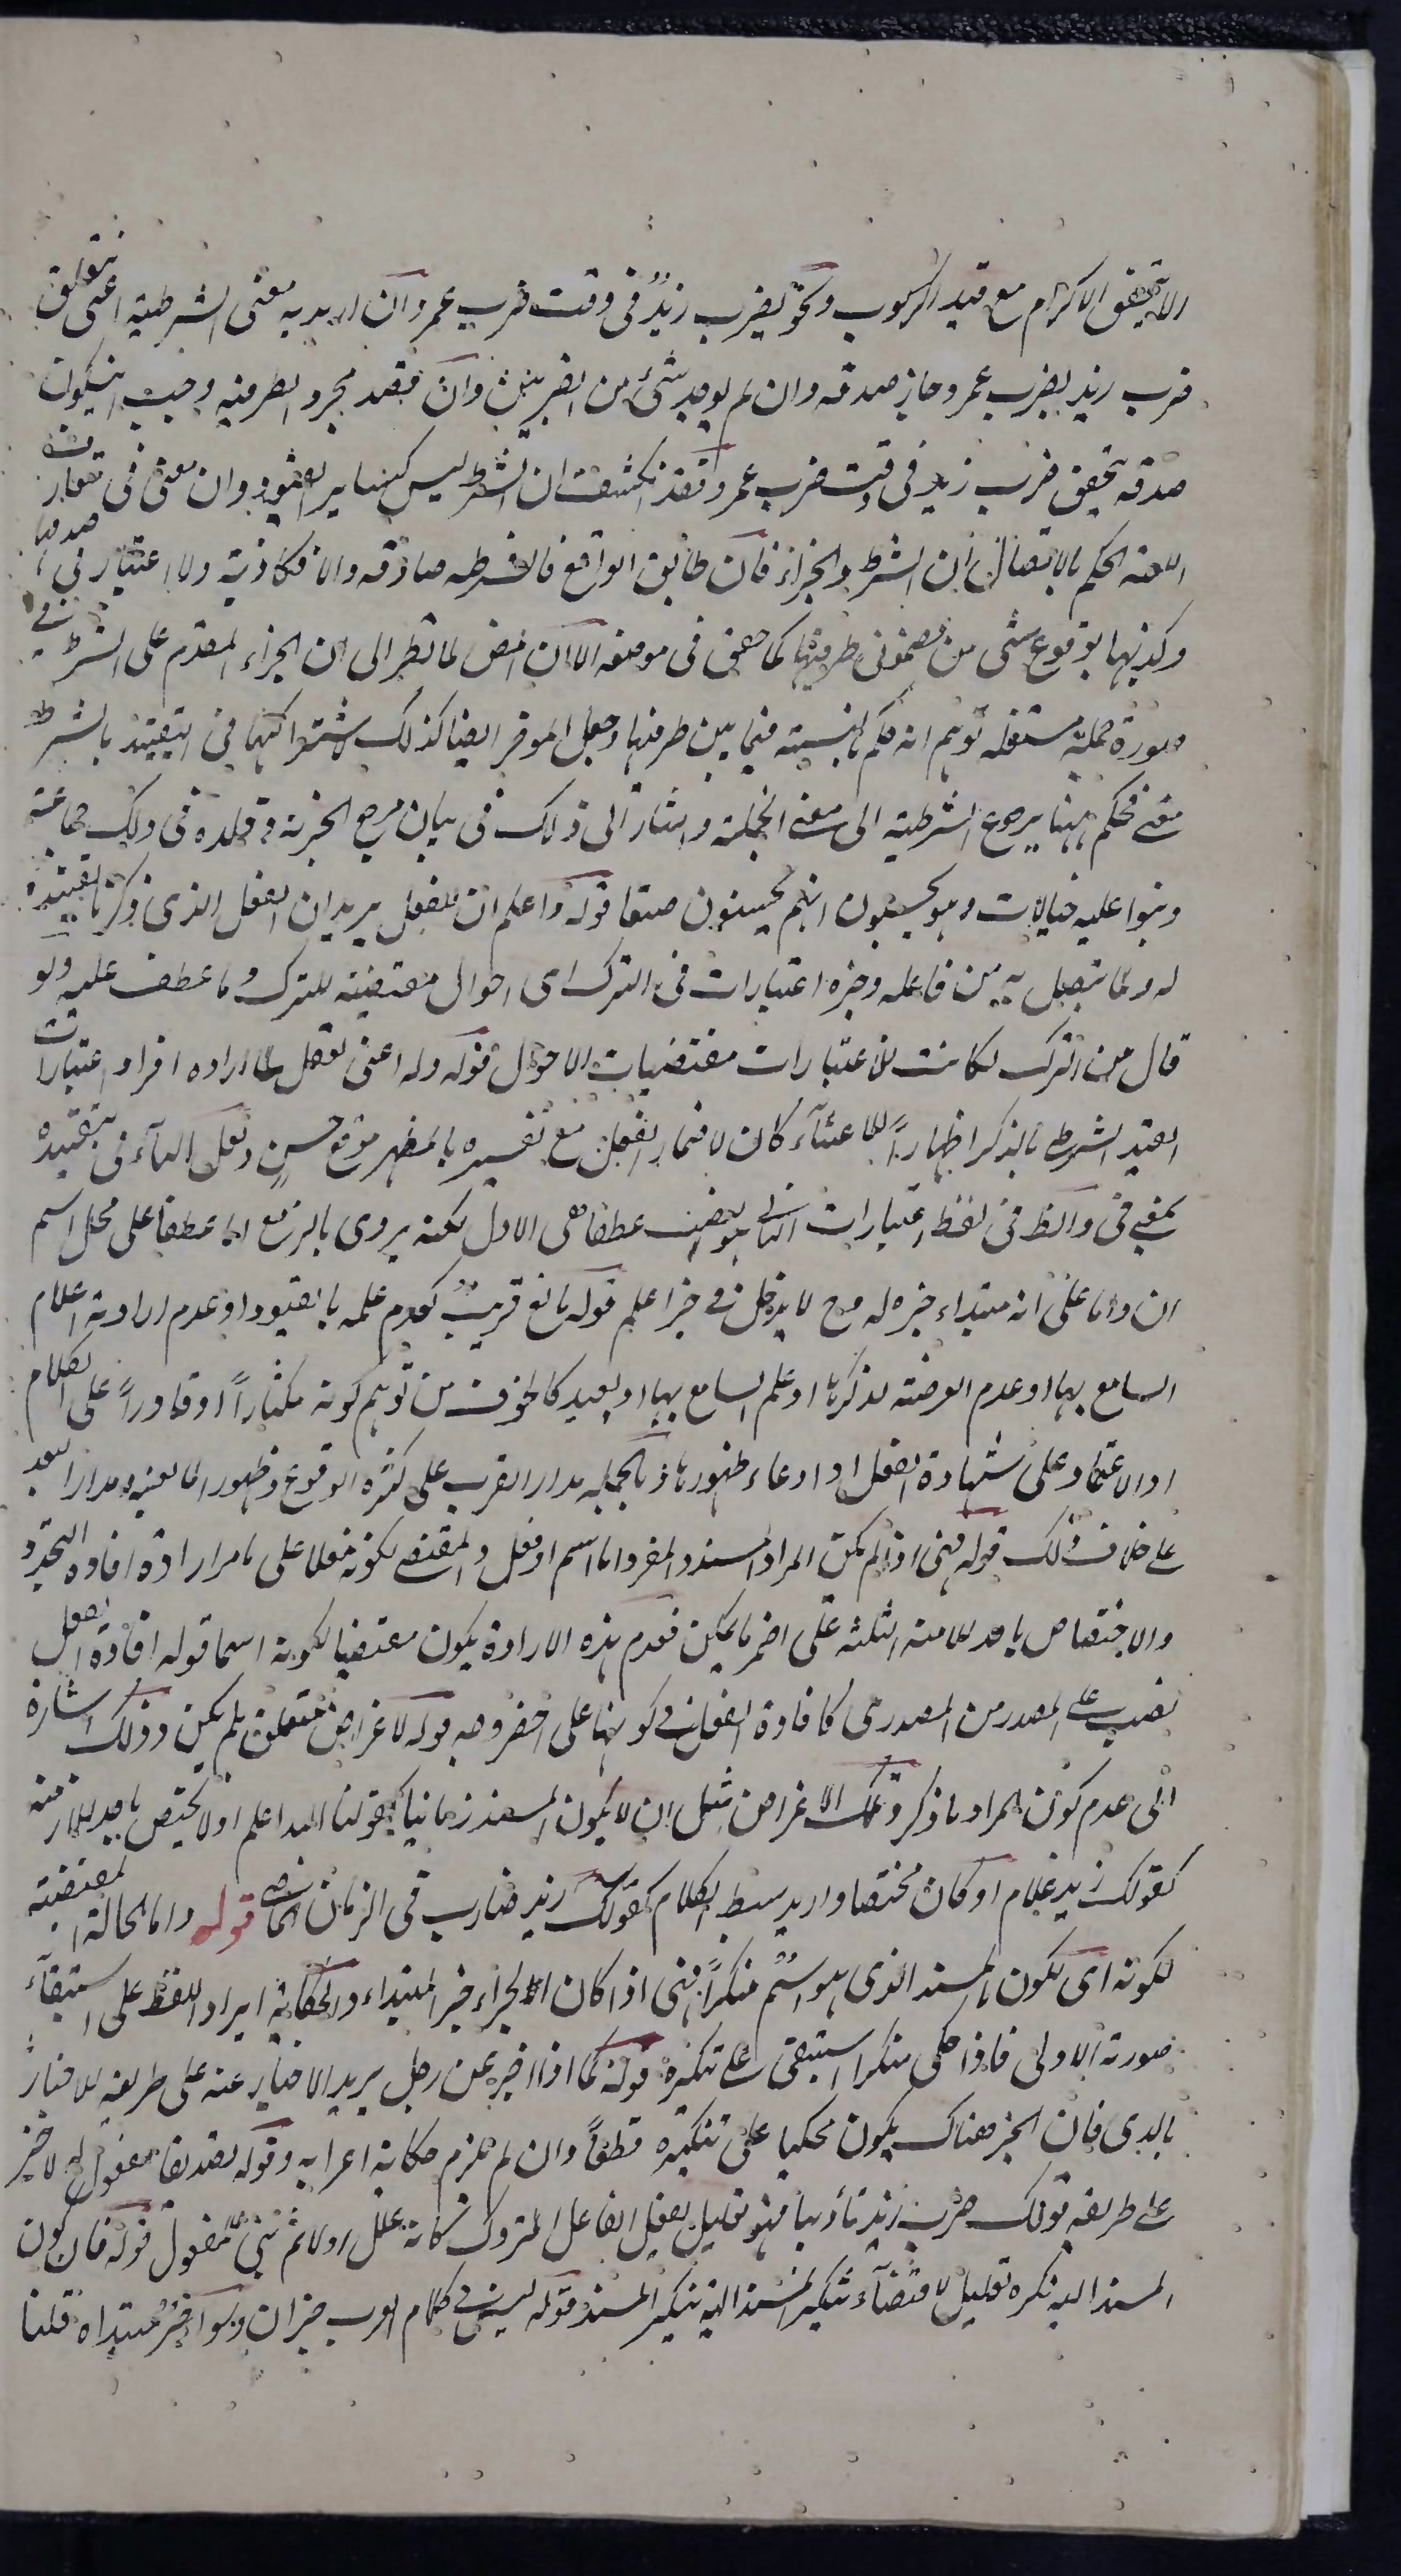 الا بتحقق الاكرام مع قيد الركوب ونحو يضرب زيد فى وقت ضرب عمرو ان اريد به معنى الشرطية اعنى تعلق
ضرب زيد بضرب عمرو جاز صدقه وان لم يوجد شئ من الضربين وان قصد مجرد الظرفية وجب ان يكون
صدقه بتحقق ضرب زيد فى وقت ضرب عمرو فقد انكشف ان الشرط ليس كساير القيود وان معنى فى تعارف
اللغة الحكم بالاتصال بين الشرط والجزاء فان طابق الواقع فالشرطية صادقة والا فكاذبة ولا اعتبار فى صدقها
وكذبها بوقوع شئ من مضمونى طرفيها كما حقق فى موضعه الا ان المص لما نظر الى ان الجزاء المقدم على الشرط فى
صورة جملة مستقلة توهم انه حكم بالنسبة فيما بين طرفيها وجعل الموخر ايضا كذلك لاشتراكهما فى التقييد بالشرط
معنى فحكم ههنا برجوع الشرطية الى معنى الجملة واشار الى ذلك فى بيان مرجع الخبرية وقلده فى ذلك جماعة
وبنوا عليه خيالات وهو يحسبون انهم يحسنون صنعا قوله واعلم ان للفعل يريد ان الفعل الذى ذكرنا تقييده
له ولما يتصل به من فاعله وغيره اعتبارات فى الترك اى احوال مقتضية للترك وما عطف عليه ولو
قال من الترك لكانت الاعتبارات مقتضيات الاحوال قوله وله اعنى للفعل لما اراده افراد اعتبارات
القيد الشرطى بالذكر اظهارا للاعتناء كان لاضمار الفعل مع تفسيره بالمظهر موقع حسن ولعل الباء فى بتقييده
بمعنى فى والظ فى لفظ اعتبارات الثانى هو النصب عطفا على الاول لكنه يروى بالرفع اما عطفا على محل اسم
ان واما على انه مبتداء خبره له وح لا يدخل فى خبر اعلم قوله مانع قريب كعدم علمه بالقيود او عدم ارادته اعلام
السامع بها او عدم الفرصة لذكرها او علم السامع بها او بعيد كالخوف من توهم كونه مكثارا او قادرا على الكلام
او الاعتماد على شهادة العقل او ادعاء ظهورها وبالجملة مدار القرب على كثرة الوقوع وظهور المانعية ومدار البعد
على خلاف ذلك قوله فهى اذا لم يكن المراد المسند المفرد اما اسم او فعل والمقتضى لكونه فعلا على ما مر ارادة افادة التجدد
والاختصاص باحد الازمنة الثلثة على اخصر ما يمكن فعدم هذه الارادة يكون مقتضيا لكونه اسما قوله افادة الفعل
نصب على المصدر من المصدرى كافادة الفعل فى كونها على اخصر وجه قوله لاغراض متعلق بلم يكن وذلك اشارة
الى عدم كون المراد ما ذكر وتلك الاغراض مثل ان لا يكون المسند زمانيا كقولنا الله اعلم او لا يختص باحد الازمنة
كقولك زيد غلام او كان مختصا واريد بسط الكلام كقولك زيد ضارب فى الزمان الماضى قوله واما الحالة المقتضية
لكونه اى لكون المسند الذى هو اسم منكرا فهى اذا كان الجزاء خبر المبتداء والحكاية ايراد اللفظ على استبقاء
صورته الاولى فاذا حكى منكرا استبقى على تنكيره قوله كما اذا اخبر عن رجل يريد الاخبار عنه على طريقه الاخبار
بالذى فان الخبر هناك يكون محكيا على تنكيره قطعا وان لم يلزم حكاية اعرابه وقوله تصديقا مفعول له لاخبر
على طريقه قولك ضرب زيد تأديبا فهو تعليل لفعل الفاعل المتروك كانه علل اولا ثم بنى للمفعول قوله فان كون
المسند اليه نكره تعليل لاقتضاء تنكير المسند اليه تنكير المسند قوله ليس فى كلام العرب خبران وهو اخر مبتداه قلنا